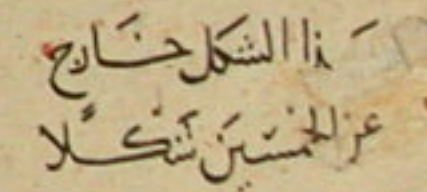 ذا الشكل خارج
عن الخمسين شكلا